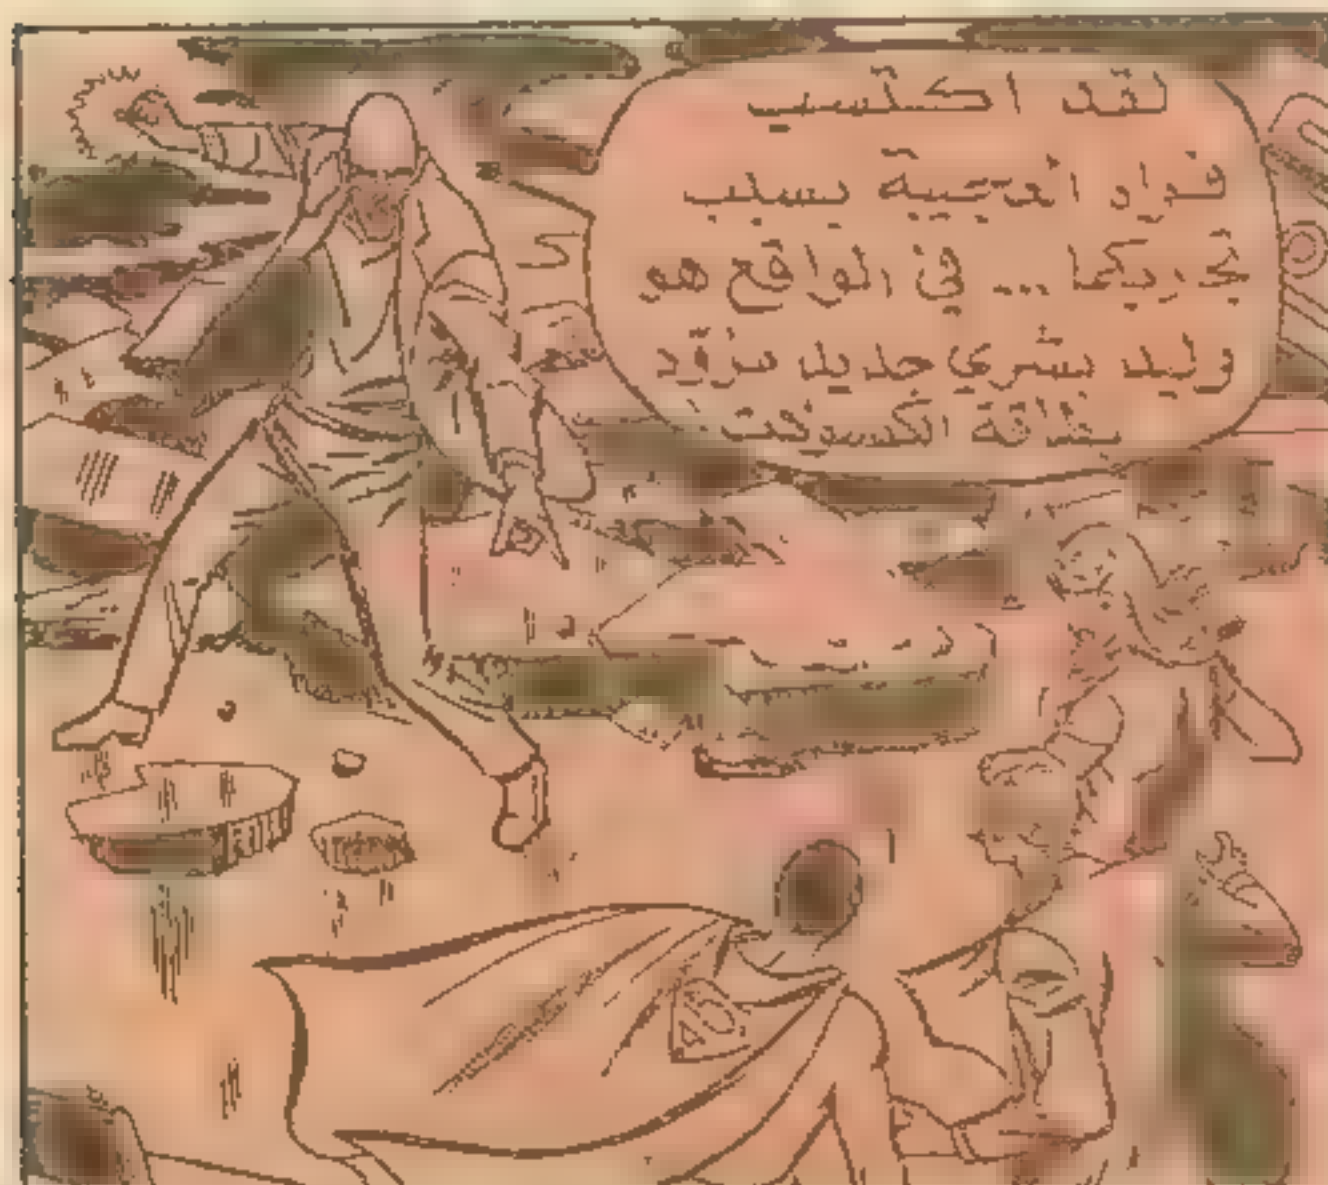 لقد اكتسب
قواه العجيبة بسبب
تجربتكما ... في الواقع هو
وليد بشري جديد مزوّد
بطاقة